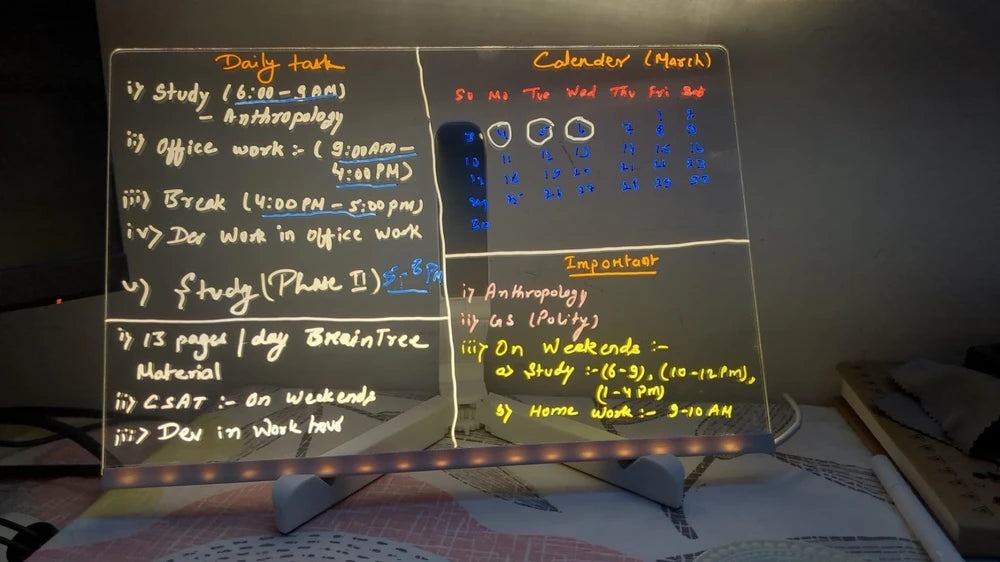 Daily task
i) Study (6:00 – 9 AM)
– Anthropology
ii) Office work :- (9:00 Am –
4:00 PM)
iii) Break (4:00 PM – 5:00 pm)
iv) Dev Work in office work
v) Study (Phase II) 5-8 PM
i) 13 pages / day BrainTree
Material
ii) CSAT :- On weekends
iii) Dev in Work hour
Calender (March)
Su Mo Tue Wed Thu Fri Sat
1 2
3 4 5 6 7 8 9
10 11 12 13 14 15 16
17 18 19 20 21 22 23
24 25 26 27 28 29 30
Important
i) Anthropology
ii) GS (Polity)
iii) On Weekends :-
a) Study :- (6-9), (10-12 Pm),
(1-4 PM)
b) Home Work :- 9-10 AM